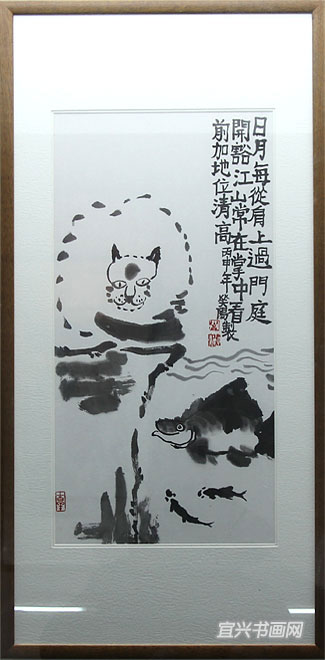 日月每從肩上過門庭
開豁江山常在掌中看
前加地位清高丙申年癸風製
宜兴书画网